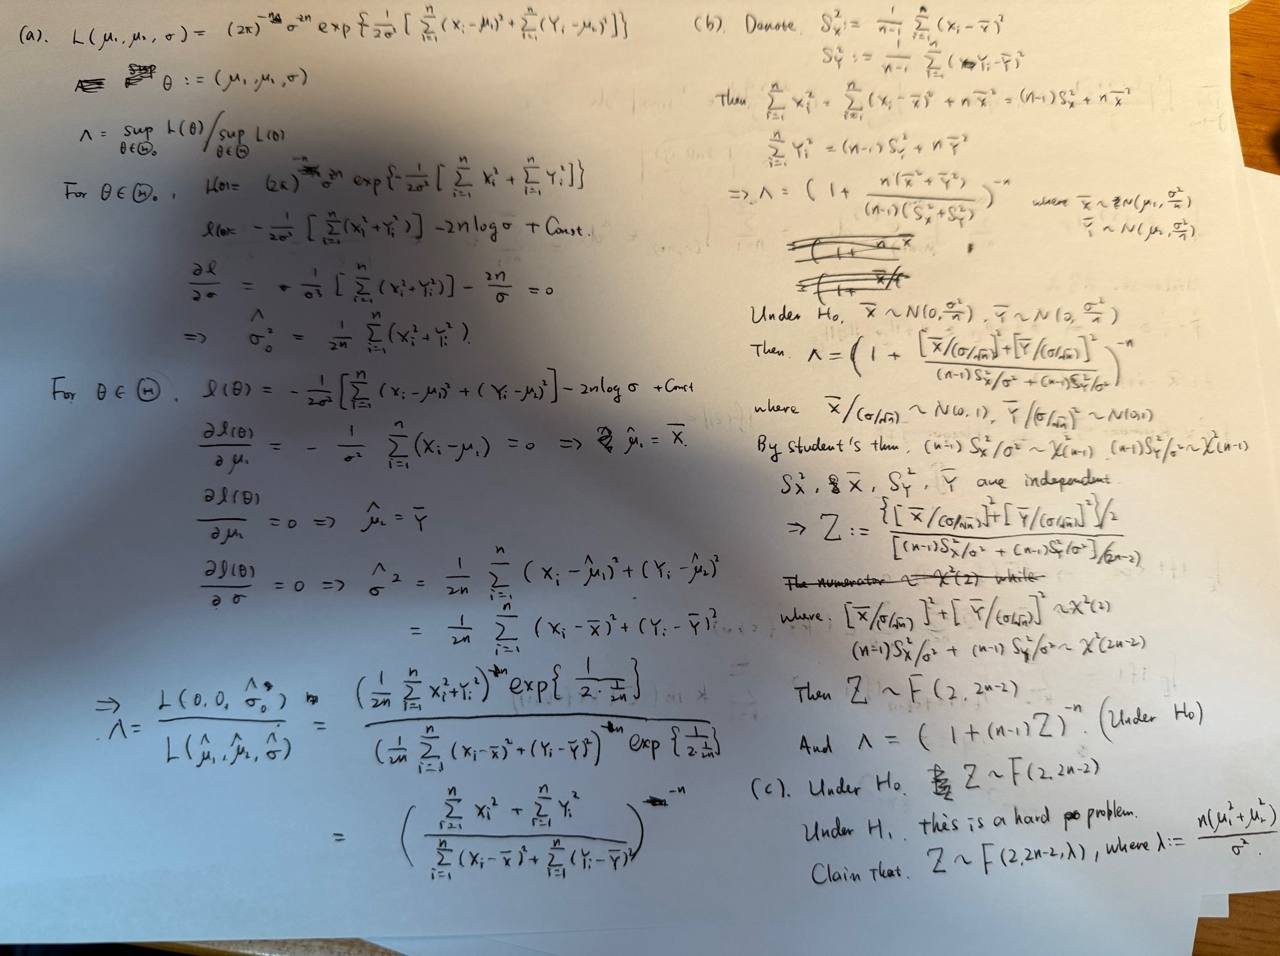 (a). L(μ₁, μ₂, σ) = (2π)^{-n} σ^{-2n} exp{ 1/2σ² [ Σ_{i=1}^n (Xi-μ₁)² + Σ_{i=1}^n (Yi-μ₂)² ] }
θ := (μ₁, μ₂, σ)
Λ = sup_{θ∈Θ₀} L(θ) / sup_{θ∈Θ} L(θ)
For θ∈Θ₀, L(θ)= (2π)^{-n} σ^{-2n} exp{ -1/2σ² [ Σ_{i=1}^n Xi² + Σ_{i=1}^n Yi² ] }
l(θ)= -1/2σ² [ Σ_{i=1}^n (Xi²+Yi²) ] - 2n log σ + Const.
∂l/∂σ = 1/σ³ [ Σ_{i=1}^n (Xi²+Yi²) ] - 2n/σ = 0
⇒ σ̂₀² = 1/2n Σ_{i=1}^n (Xi²+Yi²).
For θ∈Θ, l(θ) = -1/2σ² [ Σ_{i=1}^n (Xi-μ₁)² + (Yi-μ₂)² ] - 2n log σ + Const
∂l(θ)/∂μ₁ = - 1/σ² Σ_{i=1}^n (Xi-μ₁) = 0 ⇒ μ̂₁ = X̄.
∂l(θ)/∂μ₂ = 0 ⇒ μ̂₂ = Ȳ
∂l(θ)/∂σ = 0 ⇒ σ̂² = 1/2n Σ_{i=1}^n (Xi-μ̂₁)² + (Yi-μ̂₂)²
= 1/2n Σ_{i=1}^n (Xi-X̄)² + (Yi-Ȳ)²
⇒ Λ = L(0, 0, σ̂₀) / L(μ̂₁, μ̂₂, σ̂) = (1/2n Σ_{i=1}^n Xi²+Yi²)^{-n} exp{ 1/(2·1/2n) } / (1/2n Σ_{i=1}^n (Xi-X̄)²+(Yi-Ȳ)²)^{-n} exp{ 1/(2·1/2n) }
= ( (Σ_{i=1}^n Xi² + Σ_{i=1}^n Yi²) / (Σ_{i=1}^n (Xi-X̄)² + Σ_{i=1}^n (Yi-Ȳ)²) )^{-n}
(b). Donote S_X² := 1/(n-1) Σ_{i=1}^n (Xi-X̄)²
S_Y² := 1/(n-1) Σ_{i=1}^n (Yi-Ȳ)²
Then Σ_{i=1}^n Xi² = Σ_{i=1}^n (Xi-X̄)² + nX̄² = (n-1)S_X² + nX̄²
Σ_{i=1}^n Yi² = (n-1)S_Y² + nȲ²
⇒ Λ = ( 1 + n(X̄²+Ȳ²) / (n-1)(S_X²+S_Y²) )^{-n} where X̄ ~ N(μ₁, σ²/n)
Ȳ ~ N(μ₂, σ²/n).
Under H₀, X̄ ~ N(0, σ²/n), Ȳ ~ N(0, σ²/n)
Then Λ = ( 1 + ([X̄/(σ/√n)]² + [Ȳ/(σ/√n)]²) / ((n-1)S_X²/σ² + (n-1)S_Y²/σ²) )^{-n}
where X̄/(σ/√n) ~ N(0,1), Ȳ/(σ/√n)² ~ N(0,1)
By student's thm, (n-1)S_X²/σ² ~ χ²(n-1), (n-1)S_Y²/σ² ~ χ²(n-1)
S_X², X̄, S_Y², Ȳ are independent.
⇒ Z := {[X̄/(σ/√n)]² + [Ȳ/(σ/√n)]²}/2 / [(n-1)S_X²/σ² + (n-1)S_Y²/σ²]/(2n-2)
The numerator ~ χ²(2) while
where, [X̄/(σ/√n)]² + [Ȳ/(σ/√n)]² ~ χ²(2)
(n-1)S_X²/σ² + (n-1)S_Y²/σ² ~ χ²(2n-2)
Then Z ~ F(2, 2n-2)
And Λ = ( 1+(n-1)Z )^{-n}. (Under H₀)
(c). Under H₀. Z ~ F(2, 2n-2)
Under H₁, this is a hard problem.
Claim that. Z ~ F(2, 2n-2, λ), where λ := n(μ₁²+μ₂²)/σ².